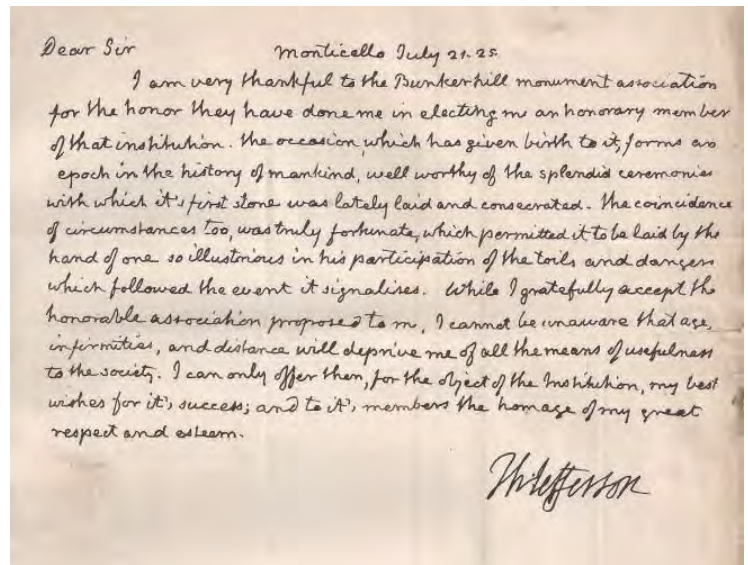 Dear Sir Monticello July 21. 25.
I am very thankful to the Bunkerhill monument association
for the honor they have done me in electing me an honorary member
of that institution. the occasion, which has given birth to it, forms an
epoch in the history of mankind, well worthy of the splendid ceremonies
with which it's first stone was lately laid and consecrated. the coincidence
of circumstances too, was truly fortunate, which permitted it to be laid by the
hand of one so illustrious in his participation of the toils and dangers
which followed the event it signalises. While I gratefully accept the
honorable association proposed to me, I cannot be unaware that age,
infirmities, and distance will deprive me of all the means of usefulness
to the society. I can only offer then, for the object of the Institution, my best
wishes for it's success; and to it's members the homage of my great
respect and esteem.
Th: Jefferson